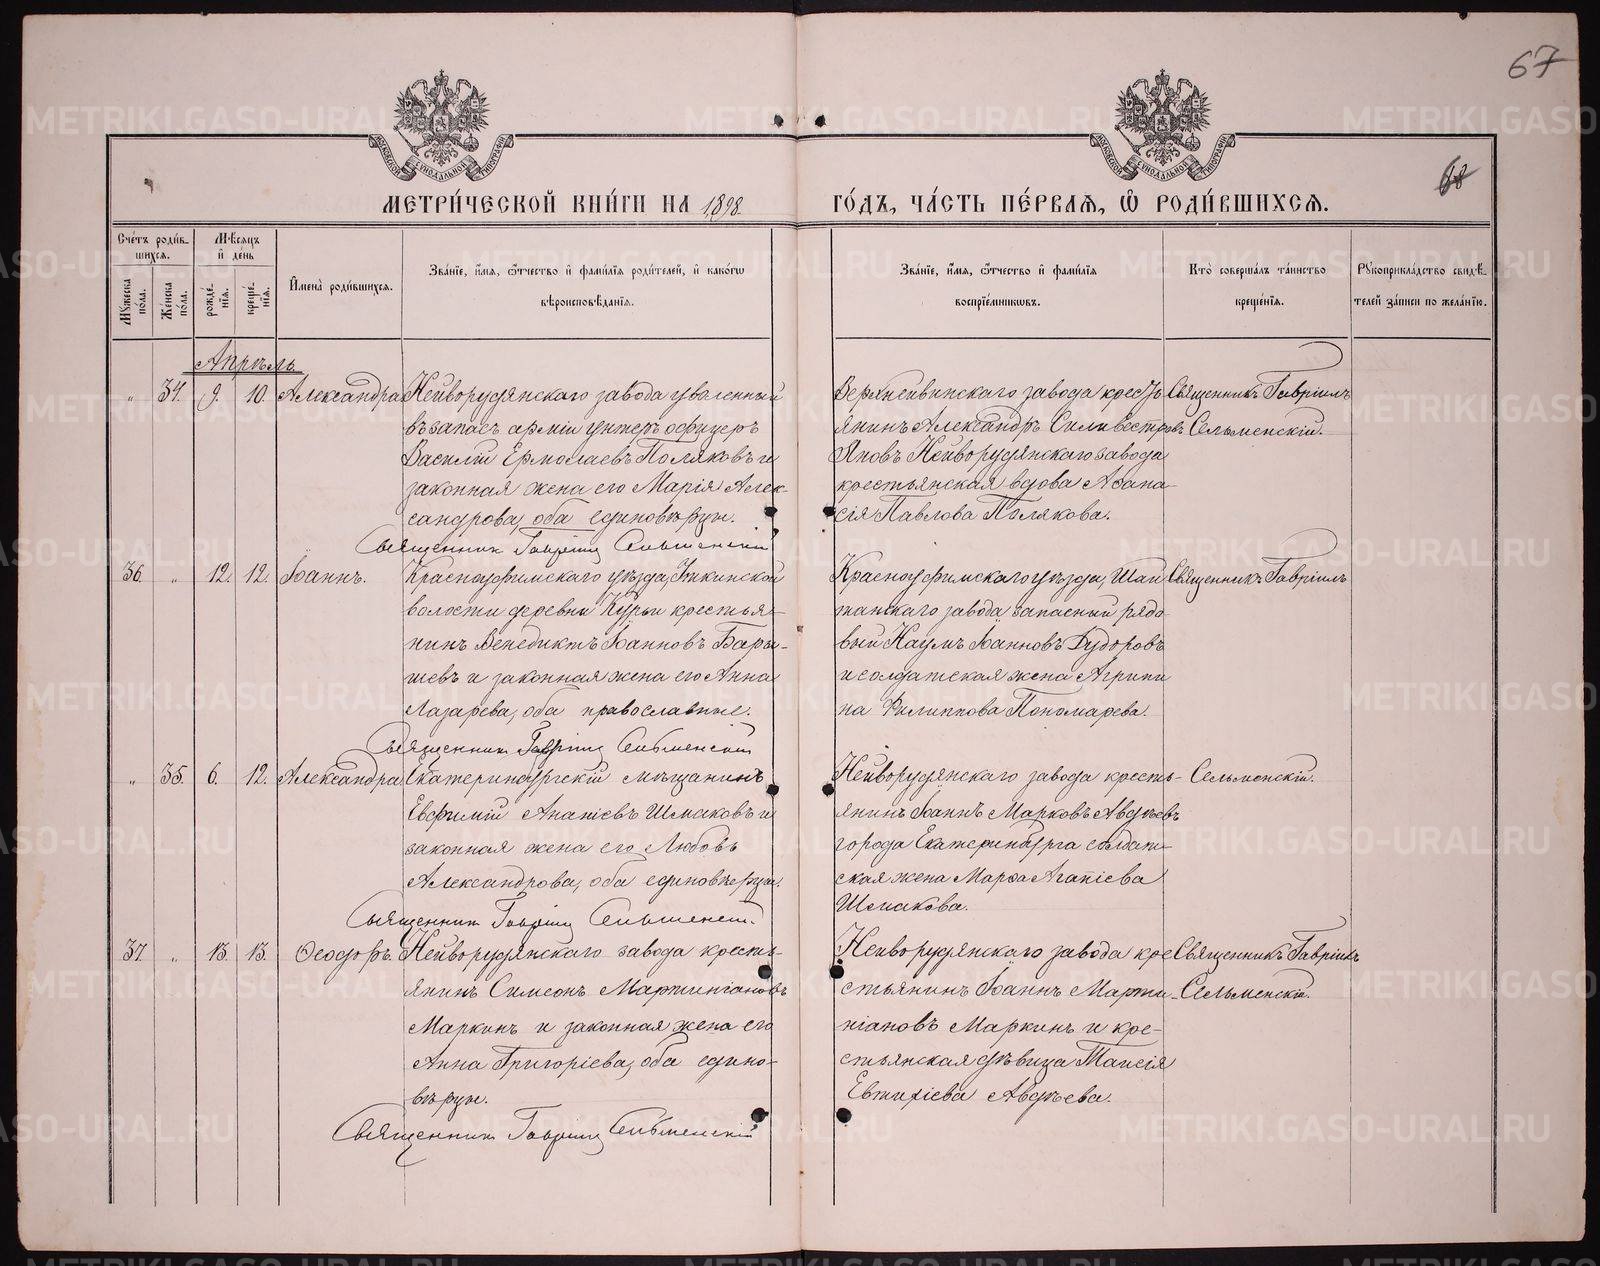 67
68
МОСКОВСКОЙ СѴНОДАЛЬНОЙ ТИПОГРАФІИ
МОСКОВСКОЙ СѴНОДАЛЬНОЙ ТИПОГРАФІИ
МЕТРИ́ЧЕСКОЙ КНИ́ГИ НА 1898
ГО́ДЪ, ЧА́СТЬ ПЕ́РВАѦ, Ѽ РОДИ́ВШИХСѦ.
Сче́тъ роди́в-
шихсѧ.
Мꙋжеска по́ла.
Же́нска по́ла.
Мѣ́сѧцъ и де́нь
рожде́-нїѧ.
креще́-нїѧ.
Имена̀ роди́вшихсѧ.
Зва́нїе, и́мѧ, ѻ҆́тчество и фами́лїѧ роди́телей, и како́гѡ
вѣроисповѣ́данїѧ.
Зва́нїе, и́мѧ, ѻ҆́тчество и фами́лїѧ
воспрїе́мникѡвъ.
Кто̀ соверша́лъ та́инство
креще́нїѧ.
Рꙋкоприкла́дство свидѣ́-
телей за́писи по жела́нїю.
Апрѣль
" 34. 9. 10. Александра
Нейворудянскаго завода уволенный
въ запасъ арміи унтеръ офицеръ
Василій Ермолаевъ Поляковъ и
законная жена его Марія Алек-
сандрова, оба единовѣрцы.
Священникъ Гавріилъ Сельменскій
Верхнейвинскаго завода крестъ
янинъ Александръ Силивестровъ
Яковъ Нейворудянскаго завода
крестьянская вдова Аѳана-
сія Павлова Полякова.
Священникъ Гавріилъ
Сельменскій.
36. " 12. 12. Іоаннъ.
Красноуфимскаго уѣзда,
волости деревни Курьи крестья-
нинъ Венедиктъ Іоанновъ Бары-
шевъ и законная жена его Анна
Лазарева, оба православные.
Священникъ Гавріилъ Сельменскій
Красноуфимскаго уѣзда, Шай
танскаго завода запасный рядо
вый Наумъ Іоанновъ Дудоровъ
и солдатская жена Агрипи
на Филиппова Пономарева.
Священникъ Гавріилъ
" 35. 6. 12. Александра.
Екатеринбургскій мѣщанинъ
Евфимій Ананіевъ Шмаковъ и
законная жена его Любовь
Александрова, оба единовѣрцы.
Священникъ Гавріилъ Сельменскій.
Нейворудянскаго завода кресть-
янинъ Іоаннъ Марковъ Авдѣевъ
города Екатеринбурга солдат-
ская жена Марѳа Агапіева
Шмакова.
Сельменскій.
37. " 13. 13. Ѳеодоръ.
Нейворудянскаго завода кресть-
янинъ Симеонъ Мартиніановъ
Маркинъ и законная жена его
Анна Григоріева, оба едино-
вѣрцы.
Священникъ Гавріилъ Сельменскій
Нейворудянскаго завода кре
стьянинъ Іоаннъ Марти-
ніановъ Маркинъ и кре-
стьянская дѣвица Таисія
Евтихіева Авдѣева.
Священникъ Гавріилъ
Сельменскій.
METRIKI.GASO-URAL.RU